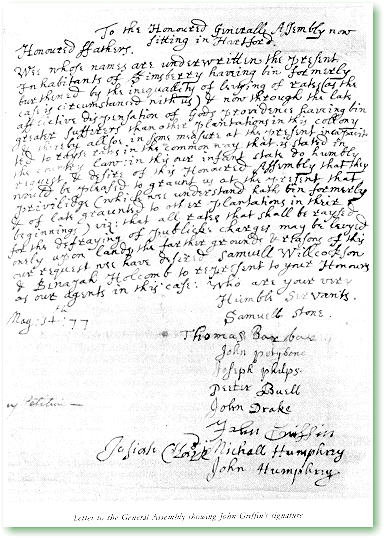 To the Honoured Generall Assembly now
sitting in Hartford.
Honoured ffathers.
Wee whose names are underwritten the present
Inhabitants of Simsberry having bin formerly
burthened by the inequality of levying of rates (as the
case is circumstanced with us) & now through the late
afflictive dispensation of Gods providence having bin
greater sufferers than other plantations in this collony
and thereby allso in some measure at the present incapacit
ted to rayse rates in the common way that is stated in
the country law: in this our infant state do humbly
request & desire of this Honoured Assembly that they
would be pleased to graunt us at the present that
priviledge (which wee understand hath bin formerly
& of late graunted to other plantations in their
beginnings) viz: that all rates that shall be raysed
for the defraying of publicke charges may be levyed
only upon land, the farther grounds & reasons of this
our request wee have desired Samuell Willcockson
& Binajah Holcomb to represent to your Honours
as our agents in this case. Who are your very
Humble Servants.
May: 14th 77
Samuell Stone.
Thomas Barbar
John petybone
Joseph phelps
Peeter Buell
John Drake
John Griffin
Josiah Clark Nichall Humphry
John Humphry
Petition
Letter to the General Assembly showing John Griffin's signature